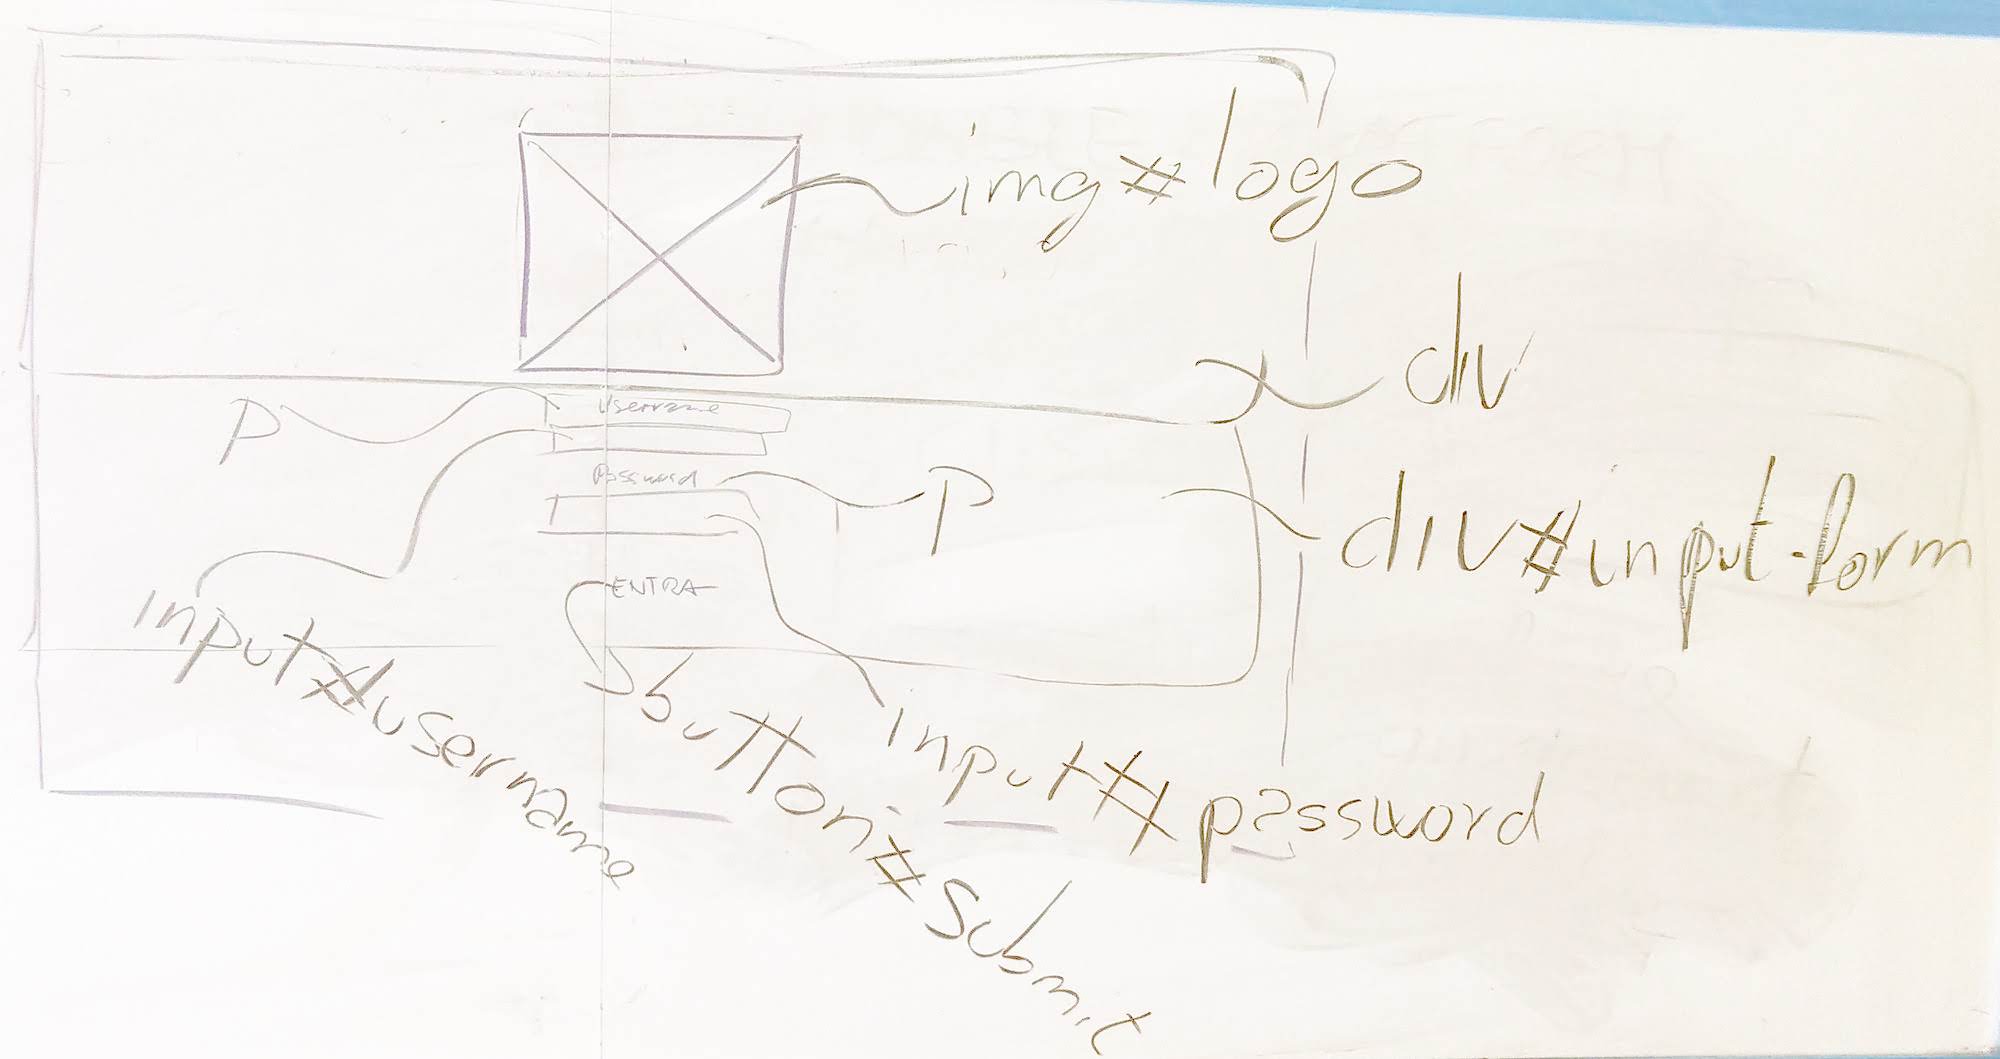 img#logo
div
Username
P
Password
P
div#input-form
ENTRA
input#username
button#submit
input#password